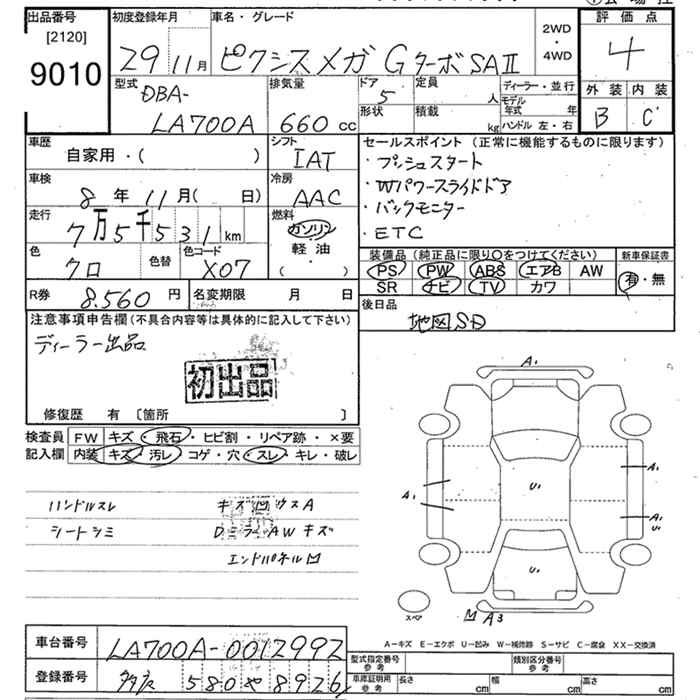 出品番号
[2120]
9010
初度登録年月
29 11月
車名・グレード
ピクシスメガ GターボSAⅡ
2WD
・
4WD
評価点
4
外装 内装
B C
型式
DBA-
LA700A
排気量
660 cc
ドア
5
形状
定員
人
積載
kg
ディーラー・並行
モデル
年式 年
ハンドル 左・右
車歴
自家用・( )
シフト
IAT
車検
8年 11月( 日)
冷房
AAC
走行
7万5千531km
燃料
ガソリン
軽油
・( )
色
クロ
色替
色コード
X07
R券 8,560円
名変期限 月 日
セールスポイント(正常に機能するものに限ります)
・プッシュスタート
・Wパワースライドドア
・バックモニター
・ETC
装備品(純正品に限り○をつけてください)
PS PW ABS エアB AW
SR ナビ TV カワ
新車保証書
有・無
後日品
地図SD
注意事項申告欄(不具合内容等は具体的に記入して下さい)
ディーラー出品
初出品
修復歴 有 〔箇所 〕
検査員
記入欄
FW キズ・飛石・ヒビ割・リペア跡・×要
内装 キズ・汚レ コゲ・穴・スレ・キレ・破レ
ハンドルスレ キズ凹ウスA
シートシミ DミラーAWキズ
エンドパネル凹
A1
A1
A1
A1
U1
U1
U1
スペア
凹 A3
A−キズ E−エクボ U−凹み W−補修跡 S−サビ C−腐食 XX−交換済
車台番号 LA700A-0012992
登録番号 580や8926
型式指定番号
参考
類別区分番号
参考
車庫証明用
参考
長さ cm 幅 cm 高さ cm